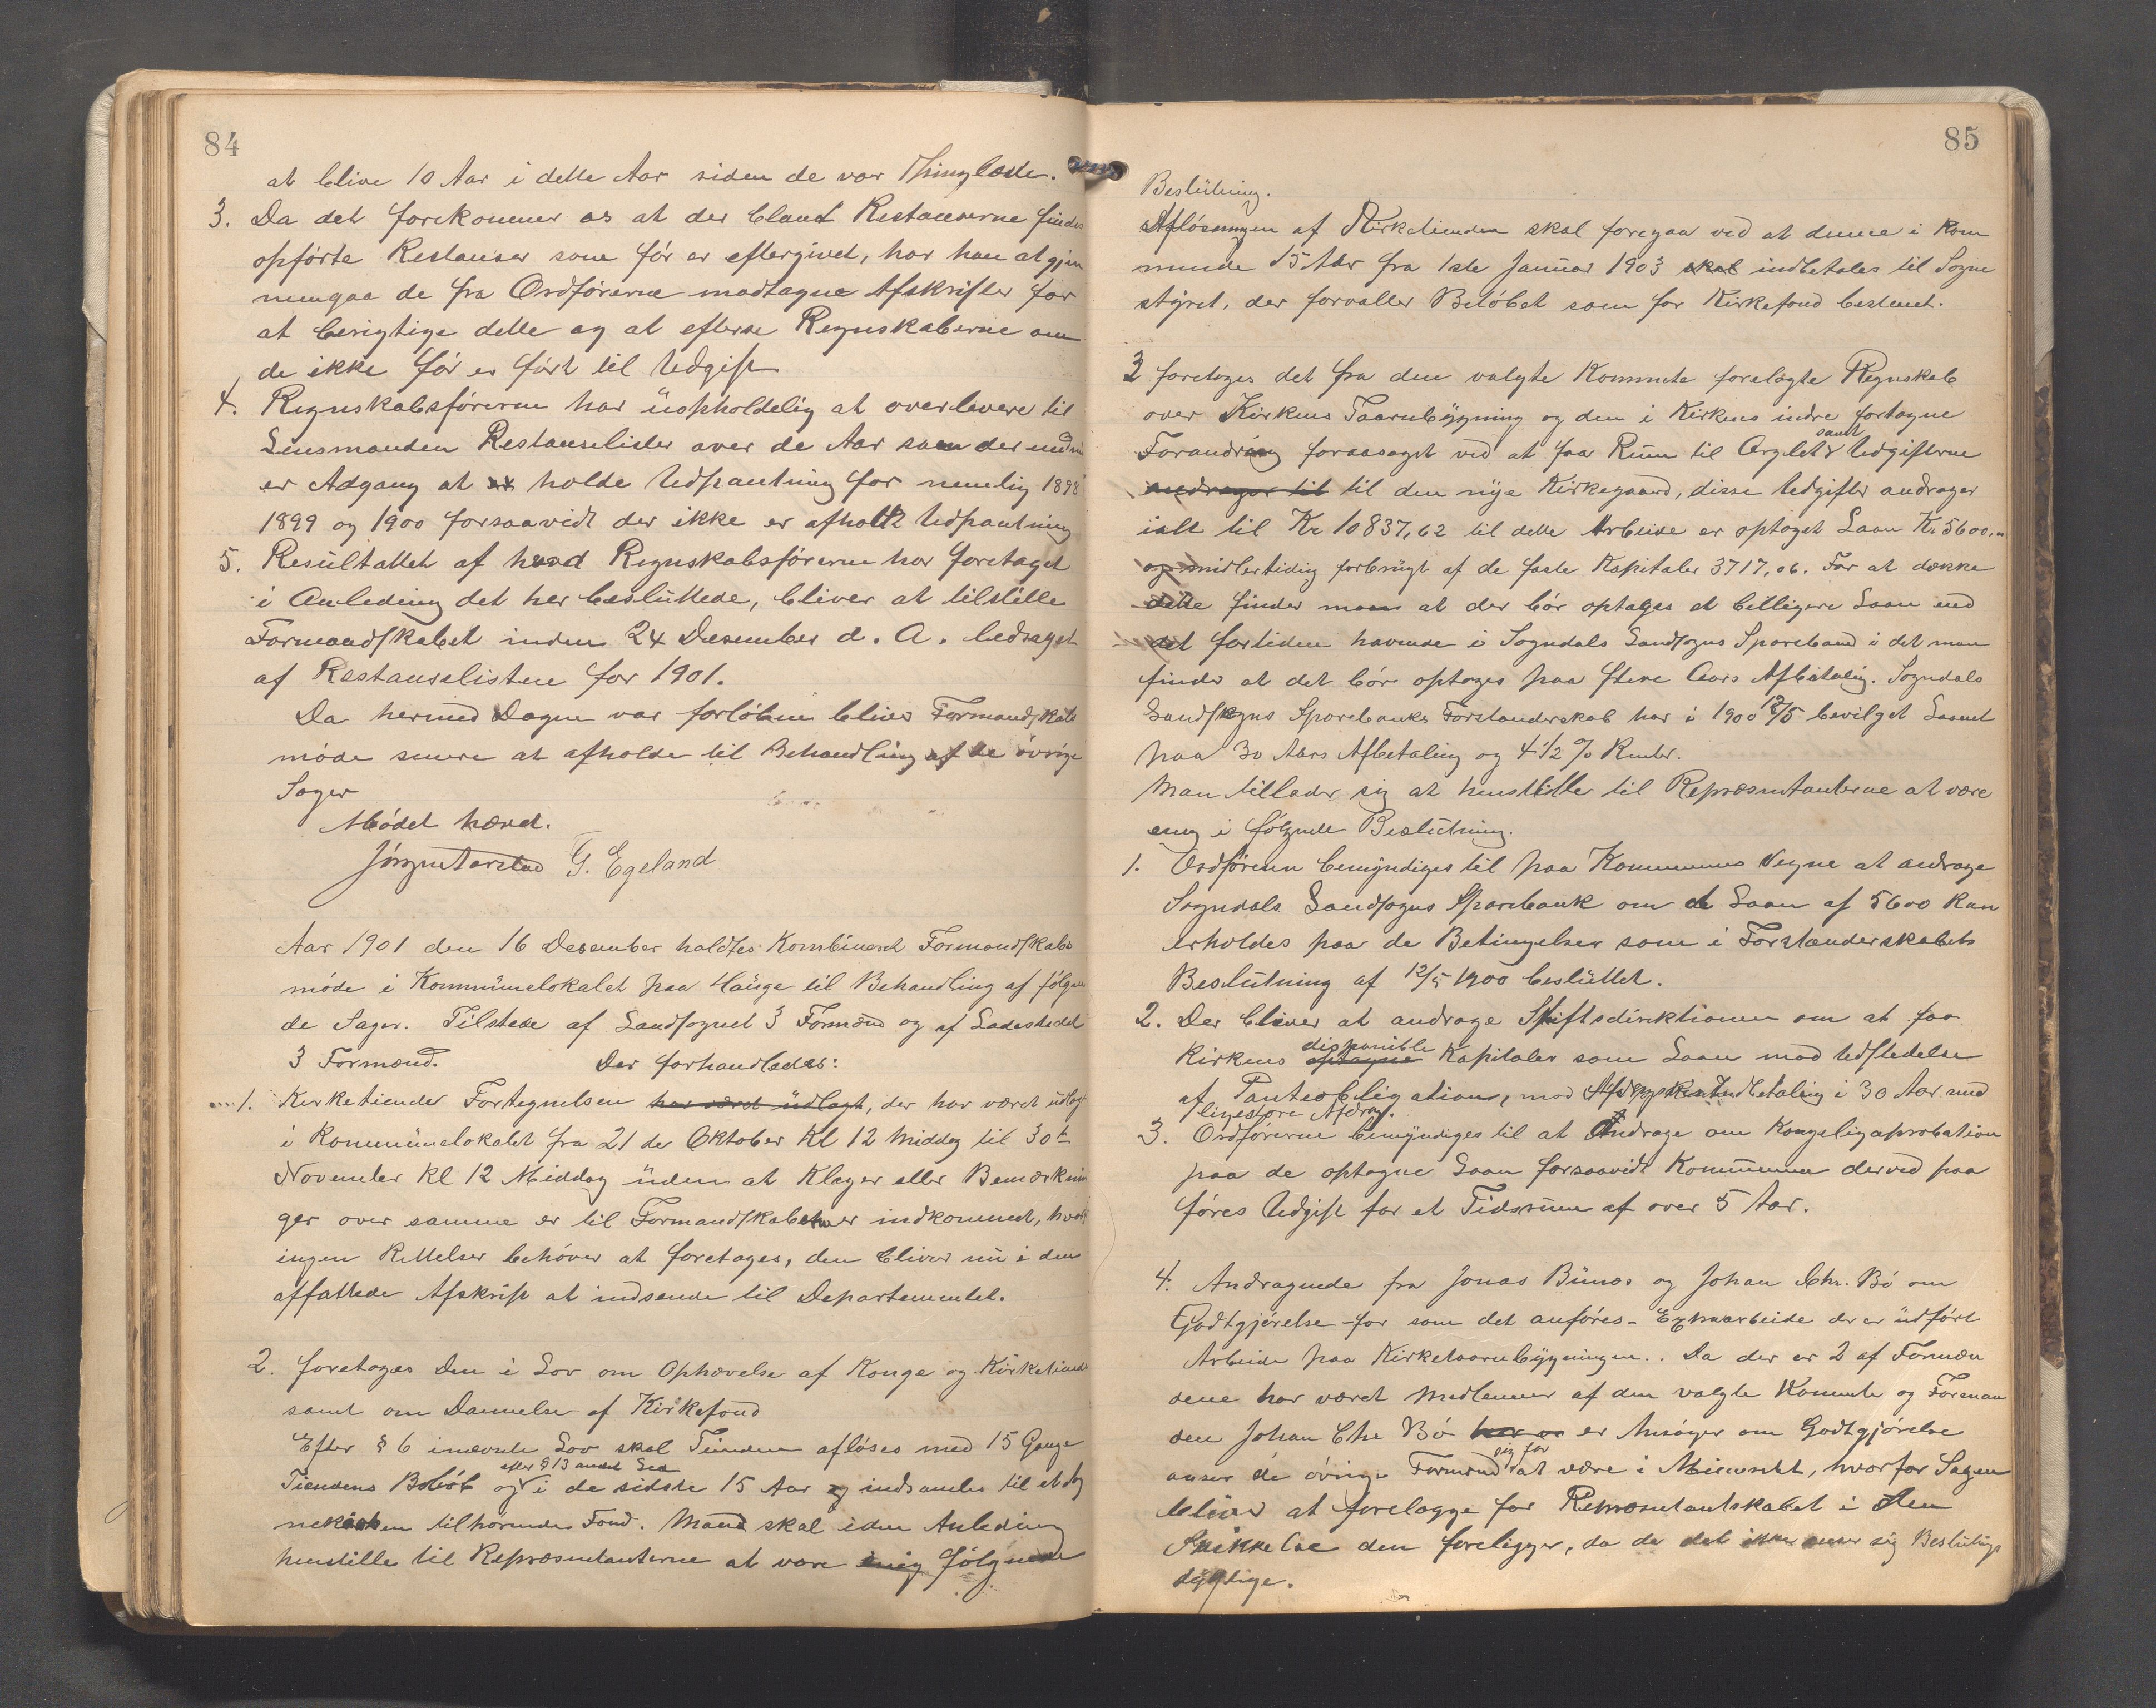 84
at blive 10 Aar i dette Aar siden de var Thinglæste.
3. Da det forekommer os at der blant Restanserne findes
opførte Restanser som før er eftergivet, har han at gjen
nemgaa de fra Ordførerne modtagne Afskrifter for
at berigtige dette og at efterse Regnskaberne om
de ikke før er ført til Udgift
4. Regnskabsføreren har uopholdelig at overlevere til
Lensmanden Restanselister over de Aar som der endnu
er Adgang at holde Udpantning for nemlig 1898
1899 og 1900 forsaavidt der ikke er afholdt Udpantning
5. Resultattet af hvad Regnskabsføreren har foretaget
i Anledning det her besluttede, bliver at tilstille
Formandskabet inden 24 Desember d. A. ledsaget
af Restanselisten for 1901.
Da hermed Dagen var forløben bliver Formandskabs
møde senere at afholde til Behandling af de øvrige
Sager
Mødet hævet.
Jørgen Aarstad G. Egeland
Aar 1901 den 16 Desember holdtes Kombineret Formandskabs
møde i Kommunelokalet paa Hauge til Behandling af følgen
de Sager. Tilstede af Landsognet 3 Formænd og af Ladestedet
3 Formænd. Der forhandledes:
1. Kirketiender Fortegnelsen har været udlagt, der har været udlagt
i Kommunelokalet fra 21 de Oktober Kl 12 Middag til 30te
November Kl 12 Middag uden at Klager eller Bemærknin
ger over samme er til Formandskabet er indkommet, hvor
ingen Rettelser behøver at foretages, den bliver nu i den
affattede Afskrift at indsende til Departementet.
2. foretoges Den i Lov om Ophævelse af Konge og Kirketiende
samt om Dannelse af Kirkefond
Efter § 6 inævnte Lov skal Tienden afløses med 15 Gange
efter § 13 andet Led
Tiendens Beløb og i de sidste 15 Aar og indsamles til et Sog
nekirken tilhørende Fond. Man skal i den Anledning
henstille til Repræsentanterne at være enig følgende
85
Beslutning.
Afløsningen af Kirketienden skal foregaa ved at denne i Kom
mende 15 Aar fra 1ste Januar 1903 skal indbetales til Sogne
styret, der forvalter Beløbet som for Kirkefond bestemt.
3 foretoges det fra den valgte Kommite forelagte Regnskab
over Kirkens Taarnbygning og den i Kirkens indre fortagne
samt
Forandring foraasaget ved at faa Rum til Orglet Udgifterne
andrager til til den nye Kirkegaard, disse Udgifter andrager
ialt til Kr 10837,62 til dette Arbeide er optaget Laan Kr 5600,-
og midlertidig forbrugt af de faste Kapitaler 3717,06. For at dække
dette finder man at der bør optages et billigere Laan end
det fortiden havende i Sogndals Landsogns Sparebank i det man
finder at det bør optages paa flere Aars Afbetaling. Sogndals
Landsogns Sparebanks Forstanderskab har i 1900 12/5 bevilget Laanet
paa 30 Aars Afbetaling og 4 1/2 % Renter.
Man tillader sig at henstille til Repræsentanterne at være
enig i følgende Beslutning.
1. Ordføreren bemyndiges til paa Kommunens Vegne at andrage
Sogndals Landsogns Sparebank om et Laan af 5600 kan
erholdes paa de Betingelser som i Forstanderskabets
Beslutning af 12/5 1900 besluttet.
2. Der bliver at andrage Stiftsdirektionen om at faa
disponible
Kirkens optagne Kapitaler som Laan mod Udstedelse
af Panteobligation, mod Indbetaling i 30 Aar med
ligestore Afdrag.
3. Ordførerne bemyndiges til at Andrage om Kongeligaprobation
paa de optagne Laan forsaavidt Kommunen derved paa
føres Udgift for et Tidsrum af over 5 Aar.
4. Andragende fra Jonas Bunes og Johan Chr. Bø om
Godtgjørelse for som det anføres - Extraarbeide der er udført
Arbeide paa Kirketaarnbygningen. Da der er 2 af Formæn
dene har været Medlemmer af den valgte Komite og Forman
den Johan Chr Bø har er Ansøger om Godtgjørelse
sig for
anser de øvrige Formænd at være i Minoritet, hvorfor Sagen
bliver at forelægge for Repræsentantskabet i den
Skikkelse den foreligger, da de det ikke anser sig Beslutnings
dygtige.